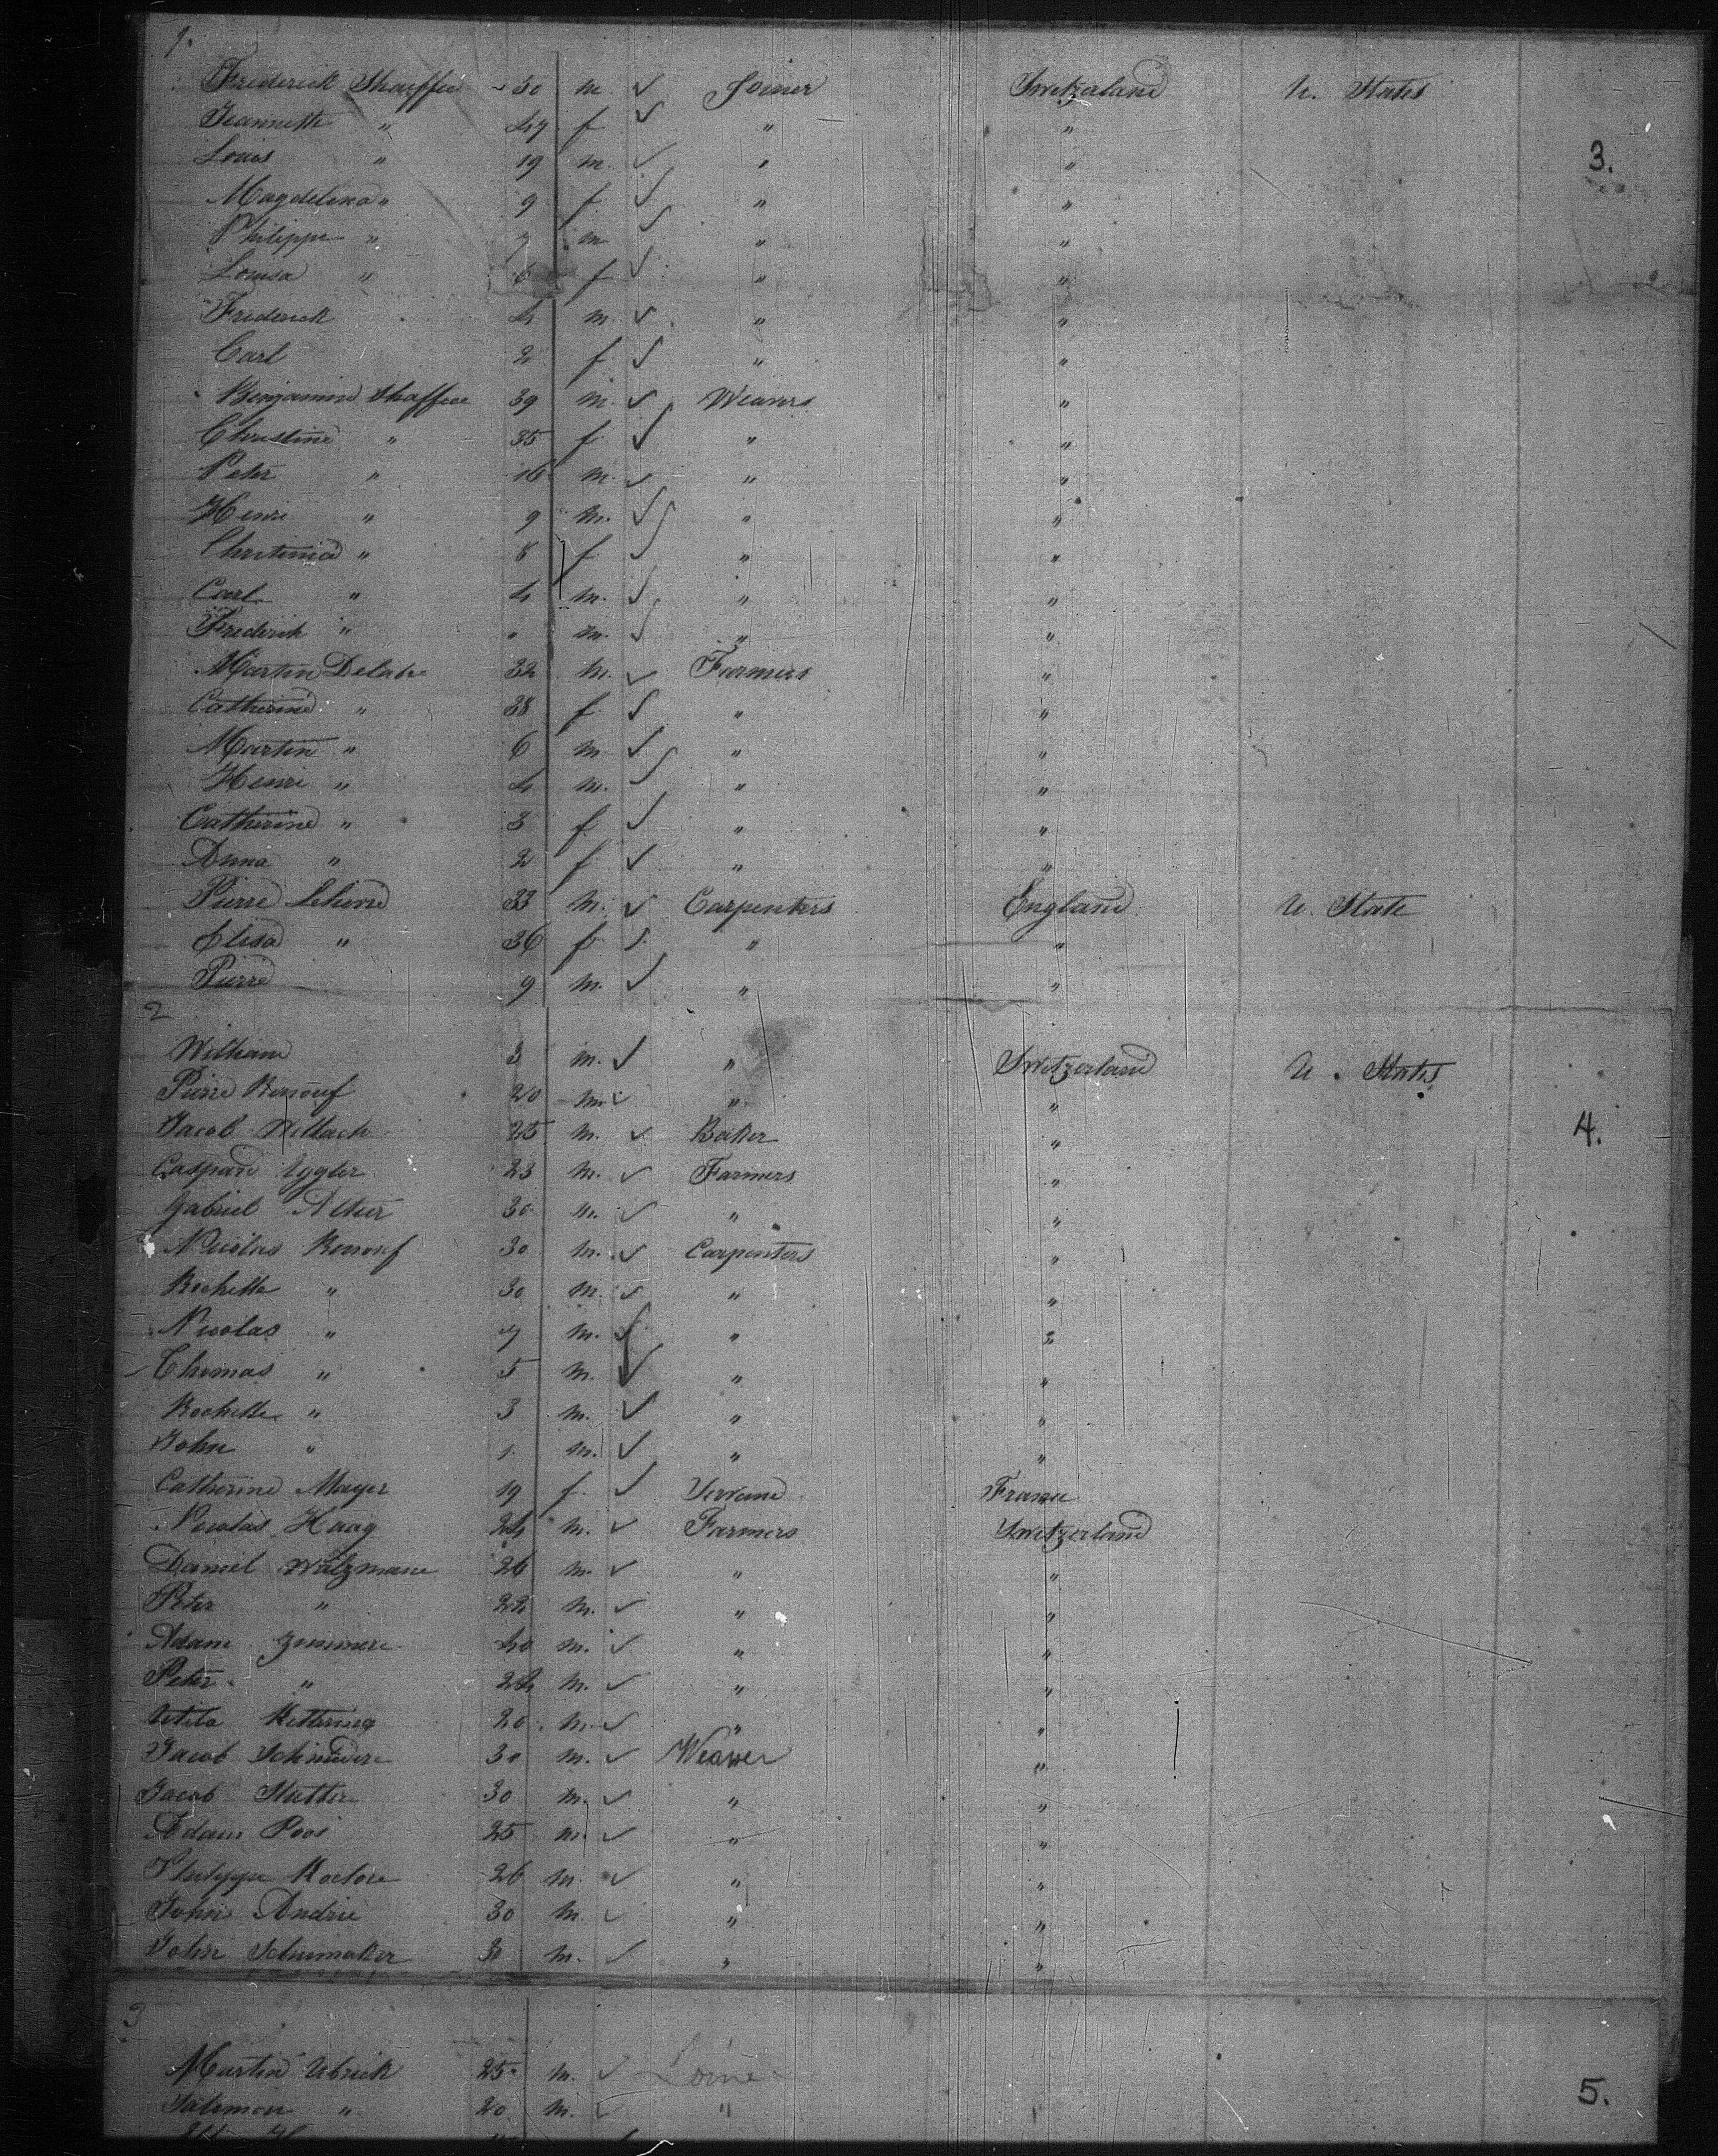 1.
Frederick Shaeffer 30 m ✓ Joiner Switzerland U. States
Jeannette " 47 f ✓ " "
3.
Louis " 19 m. ✓ " "
Magdelina " 9 f ✓ " "
Philippe " 7 m ✓ " "
Louisa " 6 f ✓ " "
Frederick 4 m ✓ " "
Carl 2 f ✓ " "
Benjamin Shaffer 39 m. ✓ Weavers "
Christine " 35 f ✓ " "
Peter " 16 m. ✓ " "
Henri " 9 m. ✓ " "
Christinia " 8 f ✓ " "
Carl " 4 m. ✓ " "
Frederick " " m. ✓ " "
Martin Delabr 32 m. ✓ Farmers "
Catherine " 38 f ✓ " "
Martin " 6 m ✓ " "
Henri " 4 m. ✓ " "
Catherine " 3 f ✓ " "
Anna " 2 f ✓ " "
Pierre 33 m. ✓ Carpenters England U. State
Elisa " 36 f ✓ " "
Pierre 9 m. ✓ " "
2
William 3 m. ✓ " Switzerland U. States
Pierre Renouf 20 m ✓ " "
4.
Jacob 25 m. ✓ Baker "
Caspard Eggler 23 m. ✓ Farmers "
Gabriel 30 m. ✓ " "
Nicolas Renouf 30 m. ✓ Carpenters "
Rochette " 30 m. ✓ " "
Nicolas " 7 m. ✓ " "
Thomas " 5 m. ✓ " "
Rochette " 3 m. ✓ " "
John " 1. m. ✓ " "
Catherine Mayer 19 f. ✓ France
Nicolas Haag 24 m. ✓ Farmers Switzerland
Daniel Walzmane 26 m. ✓ " "
Peter " 22 m. ✓ " "
Adam 40 m. ✓ " "
Peter " 24 m. ✓ " "
Kettering 20. m. ✓ " "
Jacob Schnidere 30 m. ✓ Weaver "
Jacob Stutter 30 m. ✓ " "
Adam Poos 25 m. ✓ " "
Philippe 26 m. ✓ " "
John Andrie 30 m. ✓ " "
John Schumaker 30 m. ✓ " "
3
Martin Ubrick 25 m. ✓
Salomon " 20 m. ✓ "
5.